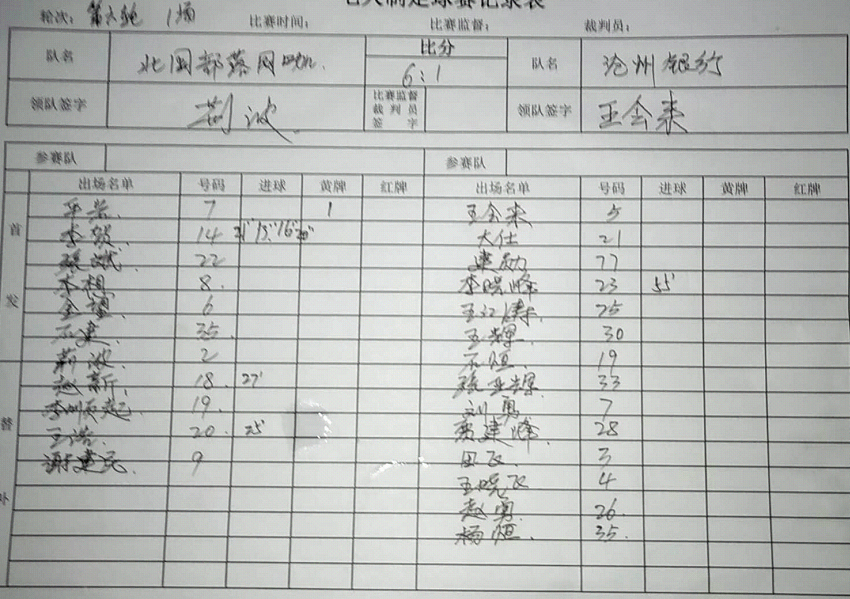 七人制足球赛记录表
轮次：第六轮 1场 比赛时间： 比赛监督： 裁判员：
队名 北国部落网 比分 6:1 队名 沧州银行
领队签字 荆波 比赛监督裁判员签字 领队签字 王会来
参赛队 参赛队
出场名单 号码 进球 黄牌 红牌 出场名单 号码 进球 黄牌 红牌
首发
7 1 王会来 5
李贺 14 15' 16' 大仕 21
张斌 22 建勋 77
李想 8 李晓峰 23 55'
6 王江涛 25
石建 35 王辉 30
荆波 2 石恒 19
替补
赵新 18 27' 张亚辉 33
李顺起 19 刘勇 7
王浩 20 25' 贾建峰 28
谢建民 9 田飞 3
王晓飞 4
赵勇 26
杨恒 35